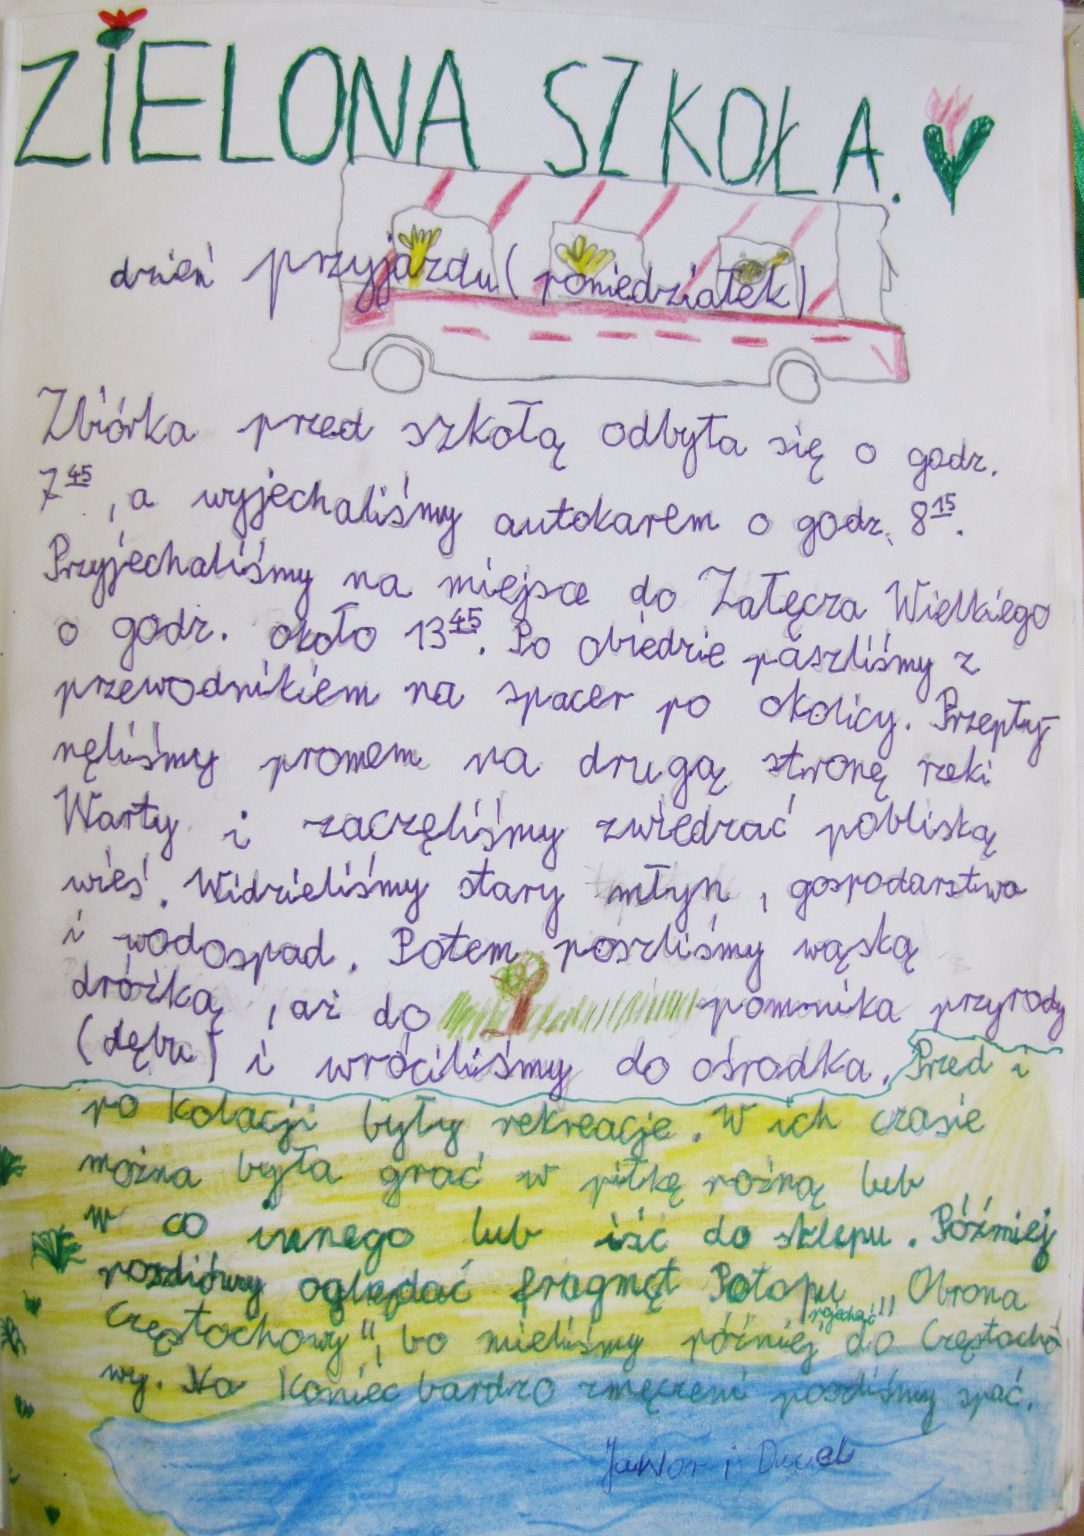 ZIELONA SZKOŁA.
dzień przyjazdu (poniedziałek)
Zbiórka przed szkołą odbyła się o godz.
7 45, a wyjechaliśmy autokarem o godz. 8 15.
Przyjechaliśmy na miejsce do Załęcza Wielkiego
o godz. około 13 45. Po obiedzie poszliśmy z
przewodnikiem na spacer po okolicy. Przepły-
nęliśmy promem na drugą stronę rzeki
Warty i zaczęliśmy zwiedzać pobliską
wieś. Widzieliśmy stary młyn, gospodarstwa
i wodospad. Potem poszliśmy wąską
dróżką, aż do pomnika przyrody
(dębu) i wróciliśmy do ośrodka. Przed i
po kolacji były rekreacje. W ich czasie
można była grać w piłkę nożną lub
w co innego lub iść do sklepu. Później
poszliśmy oglądać fragmęt Potopu „Obrona
Częstochowy", bo mieliśmy później pojechać do Częstocho
wy. Na koniec bardzo zmęczeni poszliśmy spać.
Jawor i